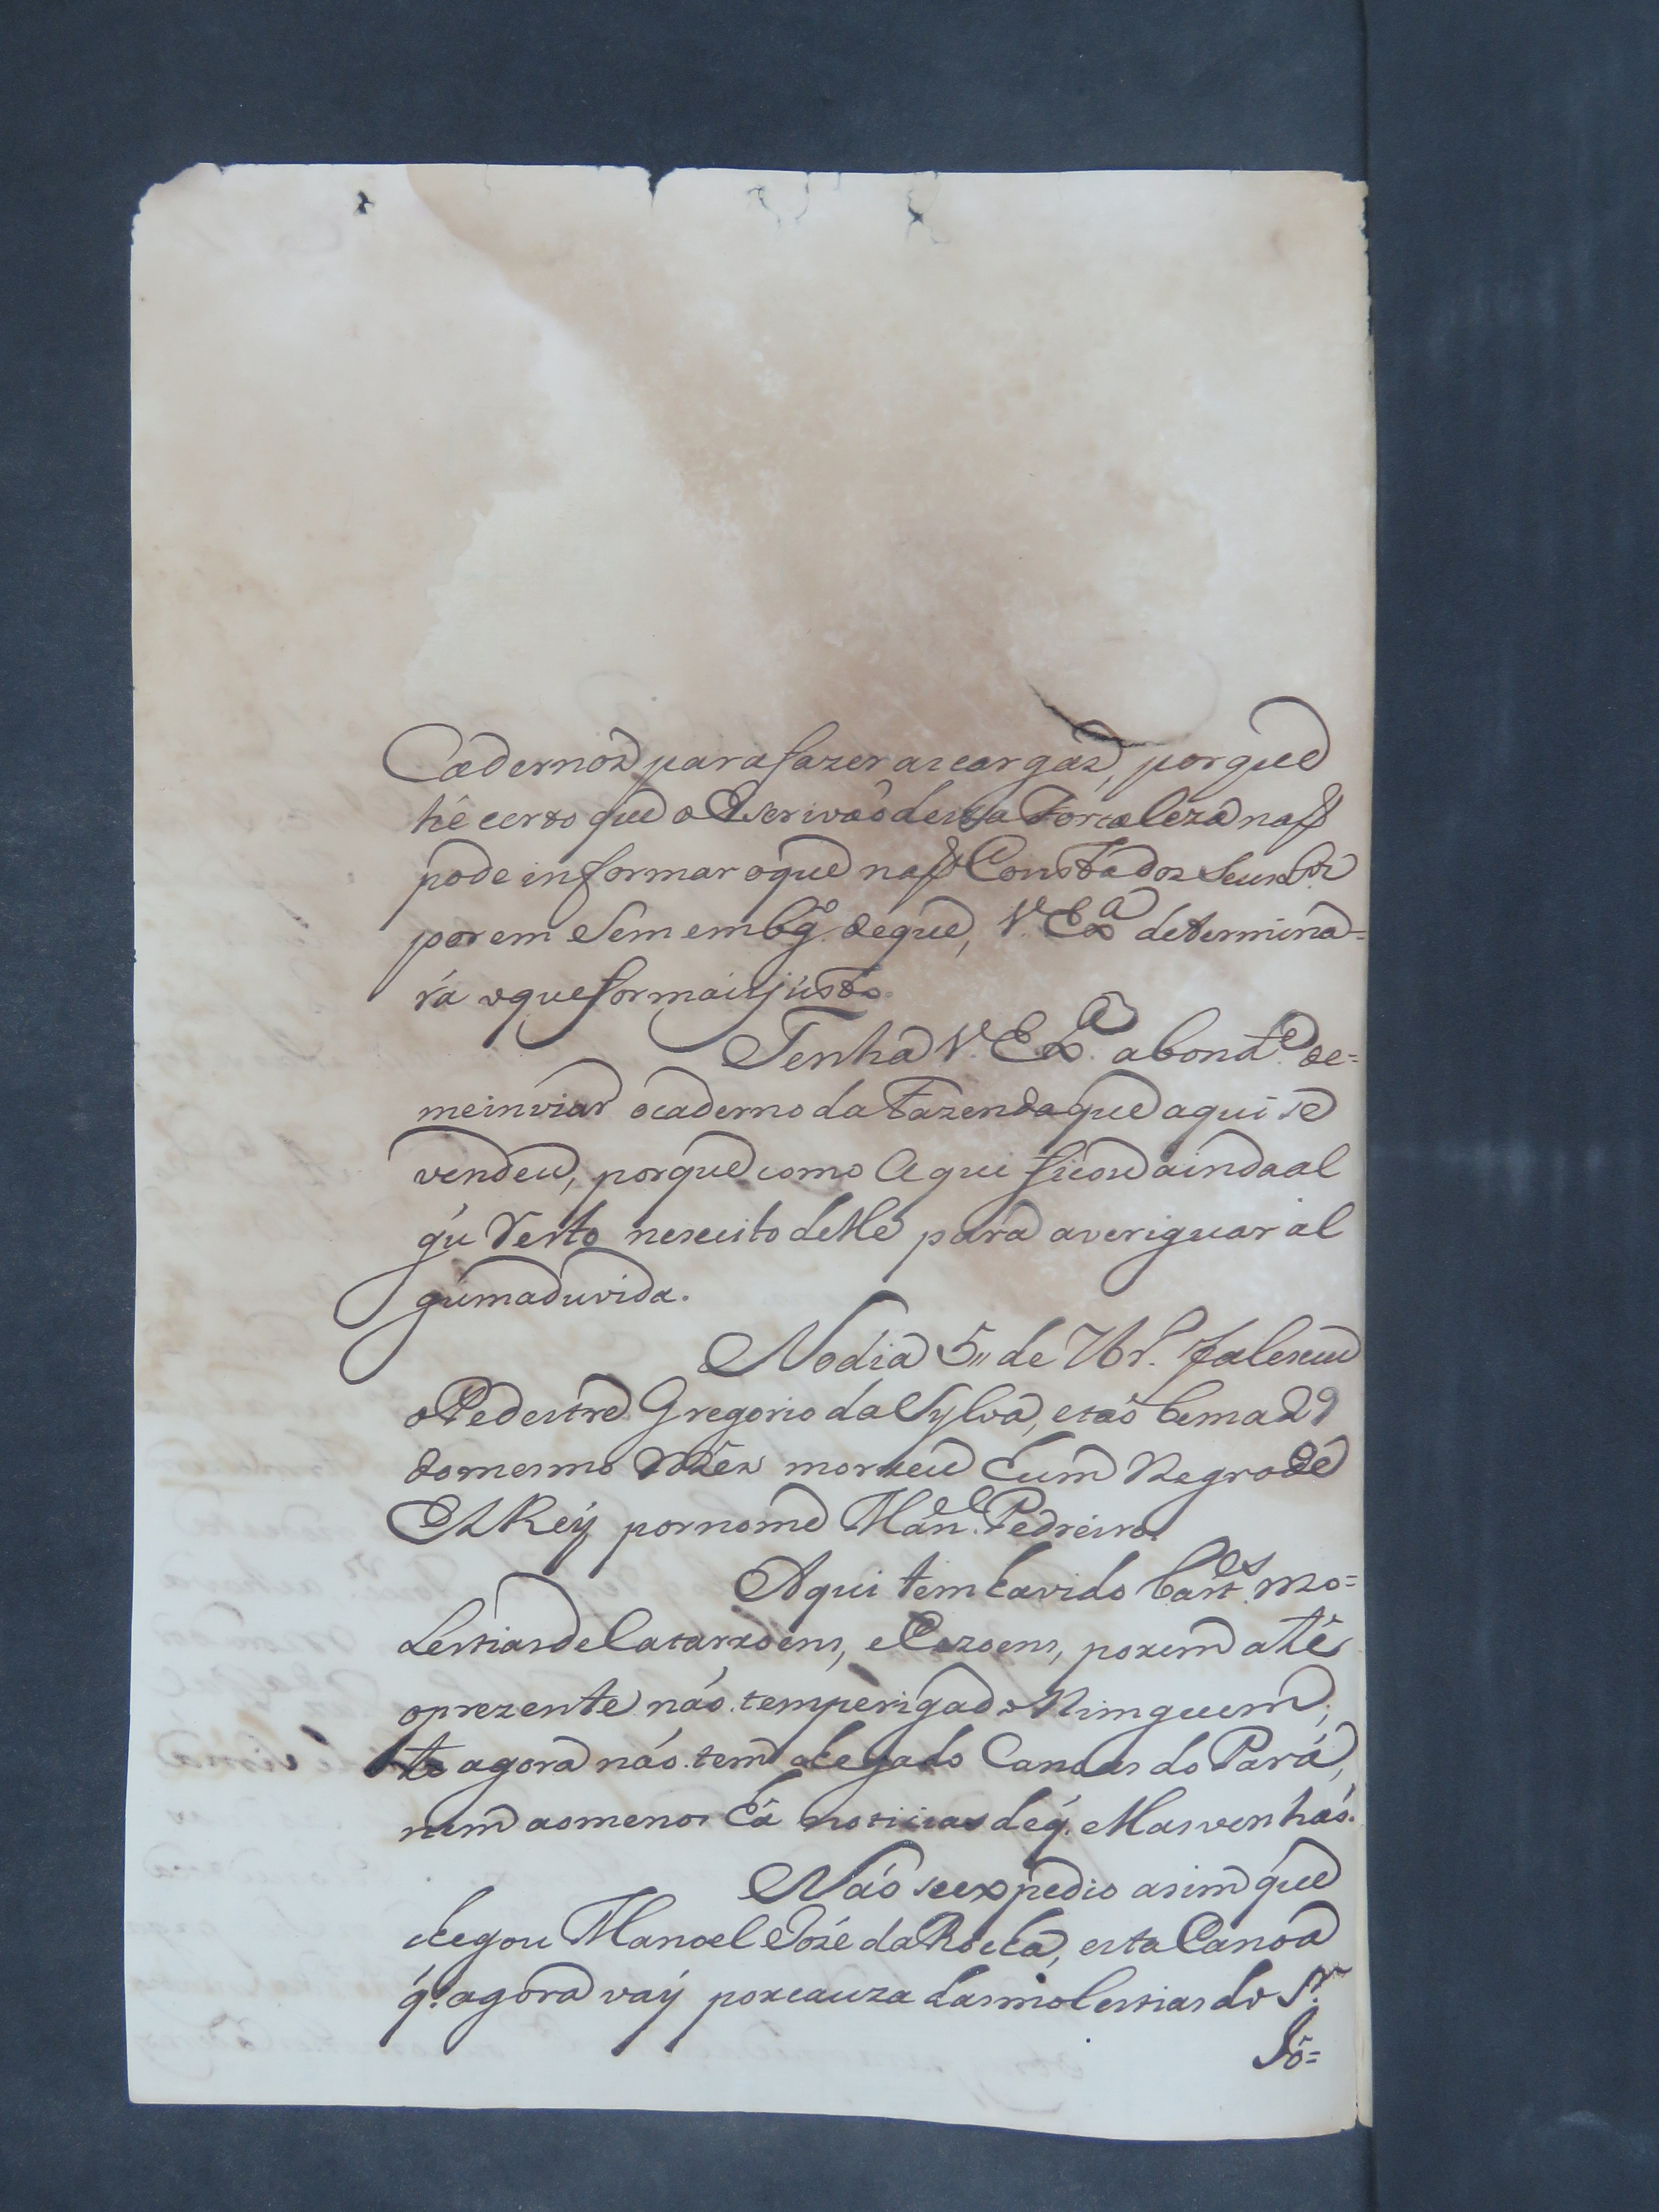 Cadernos para fazer as cargas, porque
hé certo que o Escrivaõ desta Fortaleza naõ
pode informar oque naõ Consta dos Seus
porem Sem embg.º deque, V. Ex.ª determina=
rá oque for mais justo.
Tenha V. Ex.ª abond.e de=
meinviar ocaderno da Fazenda que aqui se
vendeu, porque como Aqui ficou ainda al
gú Resto nescuito delle para averiguar al
gúma duvida.
No dia 5,, de 7br.º faleceu
o Pedestre Gregorio da Sylva, e taõ bem a 29
do mesmo Mês morreu hum Negro de
El Rey por nome Man.el Pedreiro.
Aqui tem havido bast.es mo=
lestias de Catarroens, e Cezoens, porem até
oprezente náo tem perigado Nimguem;
te agora náo tem chegado Canoas do Pará,
nem aomenos há noticias de q. Mas venháo.
Náo se expedio asim que
chegou Manoel José da Rocha, esta Canoa
q. agora vaÿ por cauza das molestias do S.r
Jo=